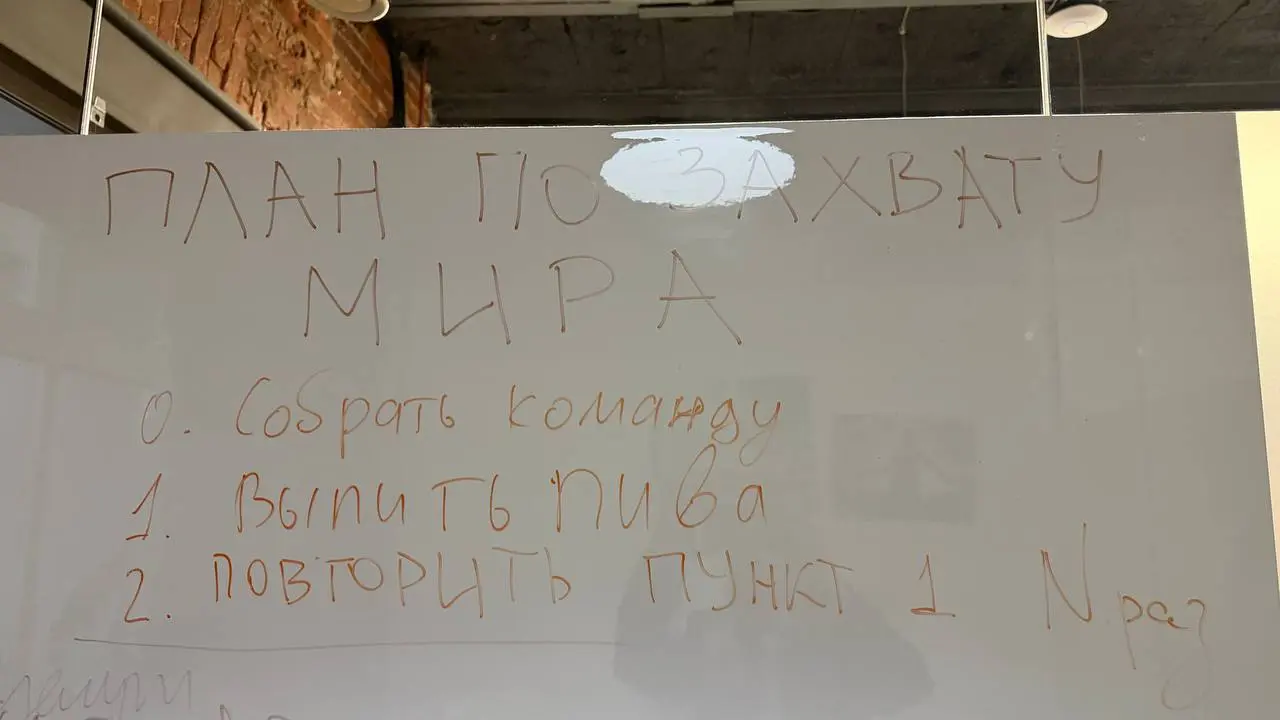 ПЛАН ПО ЗАХВАТУ
МИРА
0. Собрать команду
1. Выпить пива
2. ПОВТОРИТЬ ПУНКТ 1 N раз